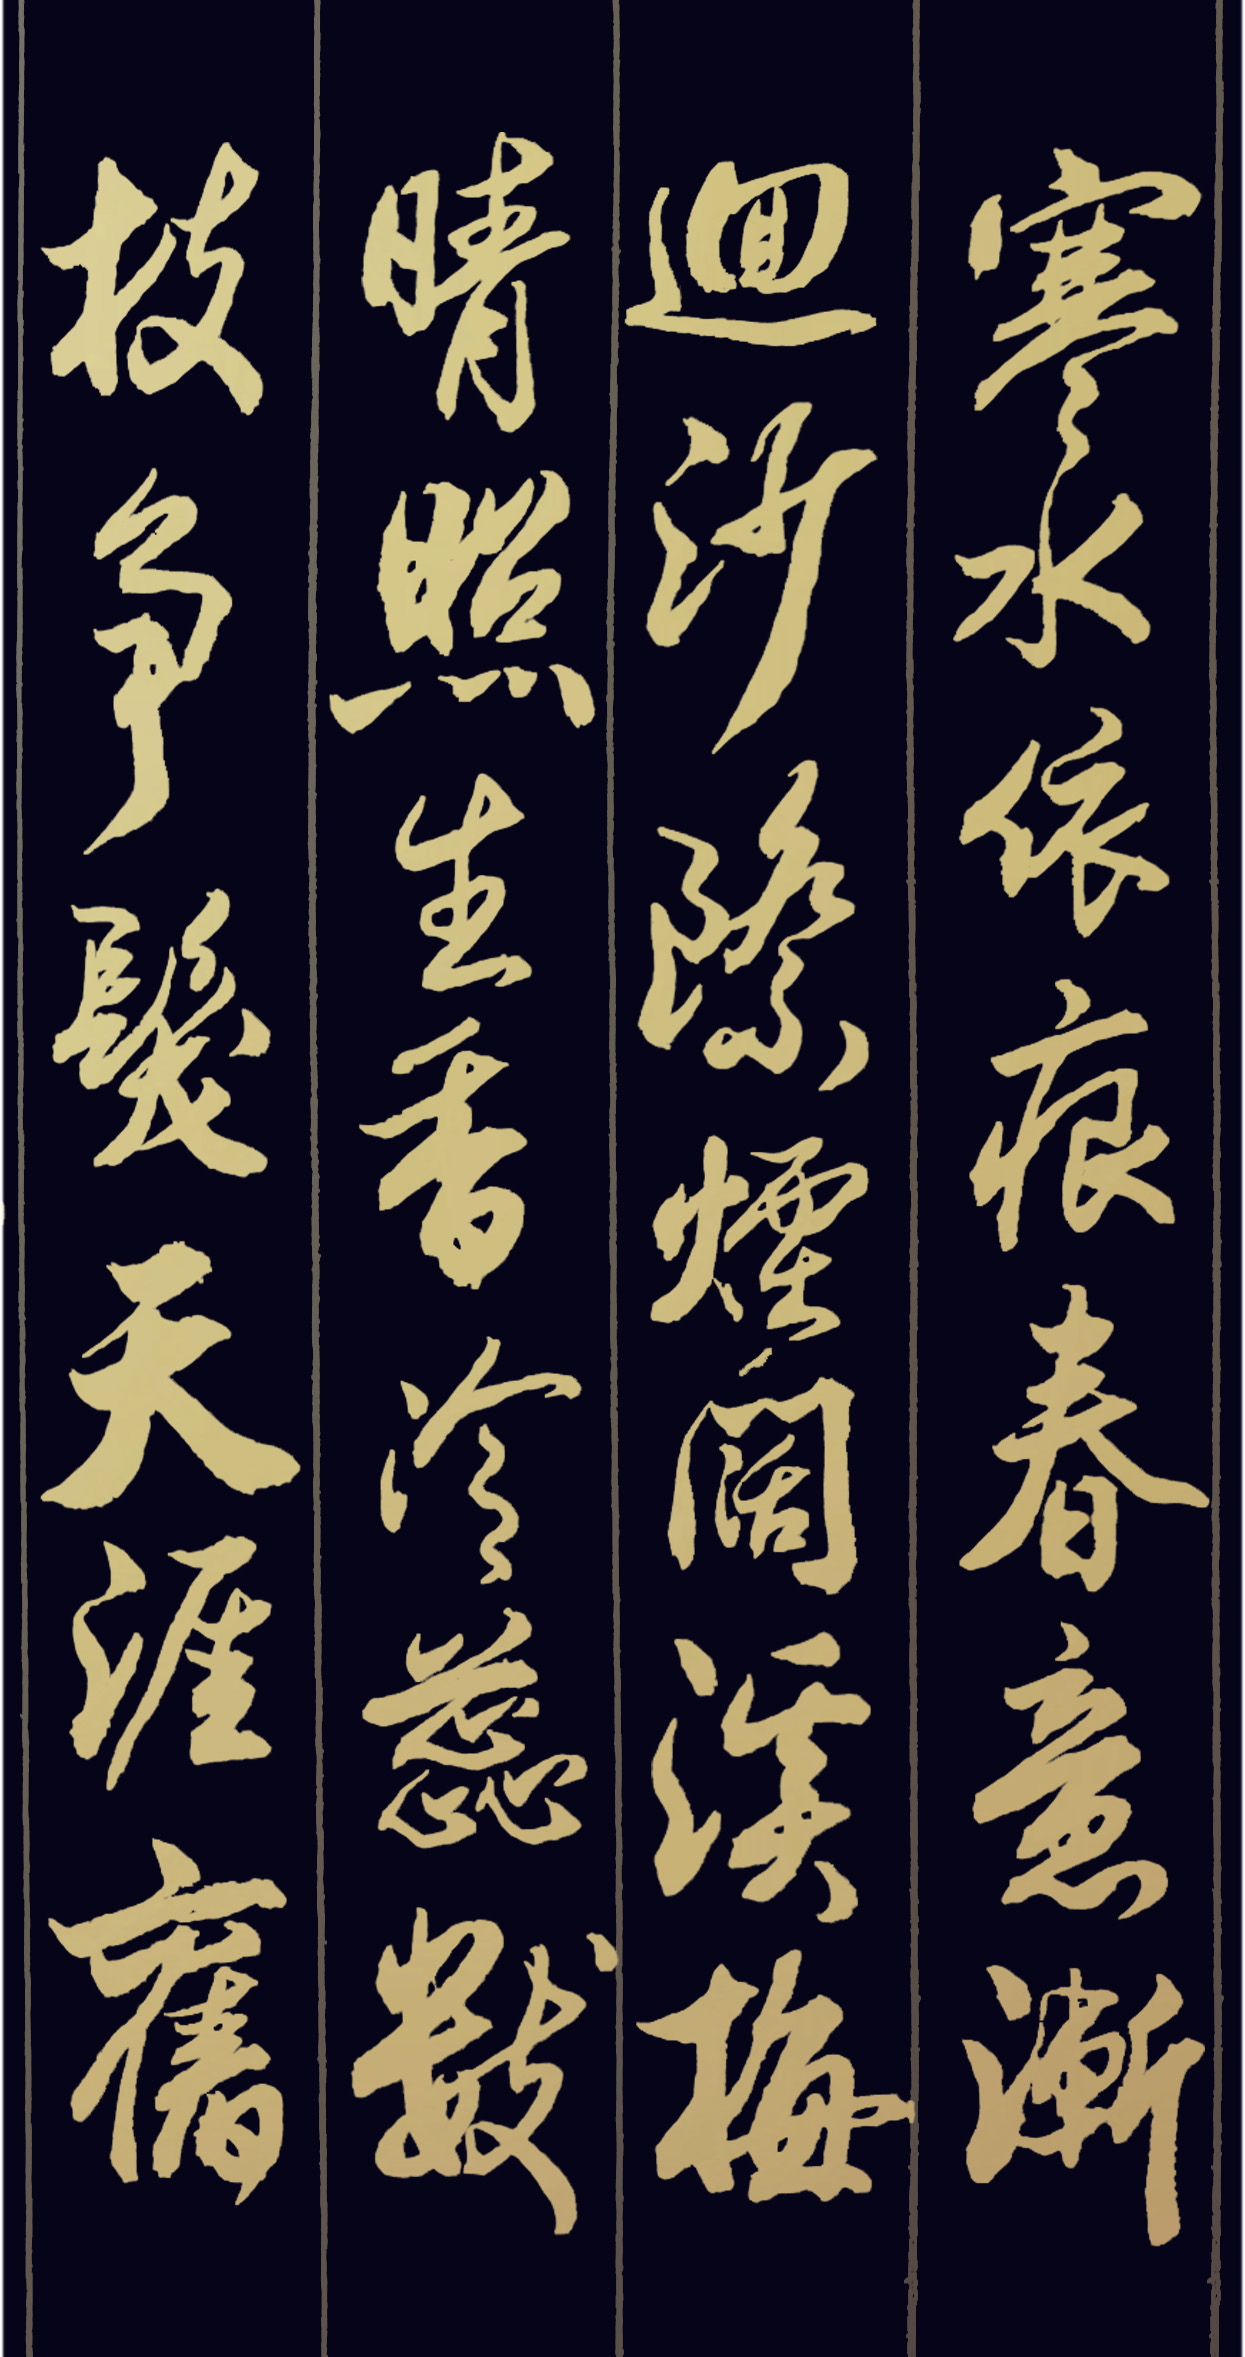 寒水依痕春意漸
迴沙際煙闊溪梅
晴照生香冷蕊數
枝爭髮天涯舊